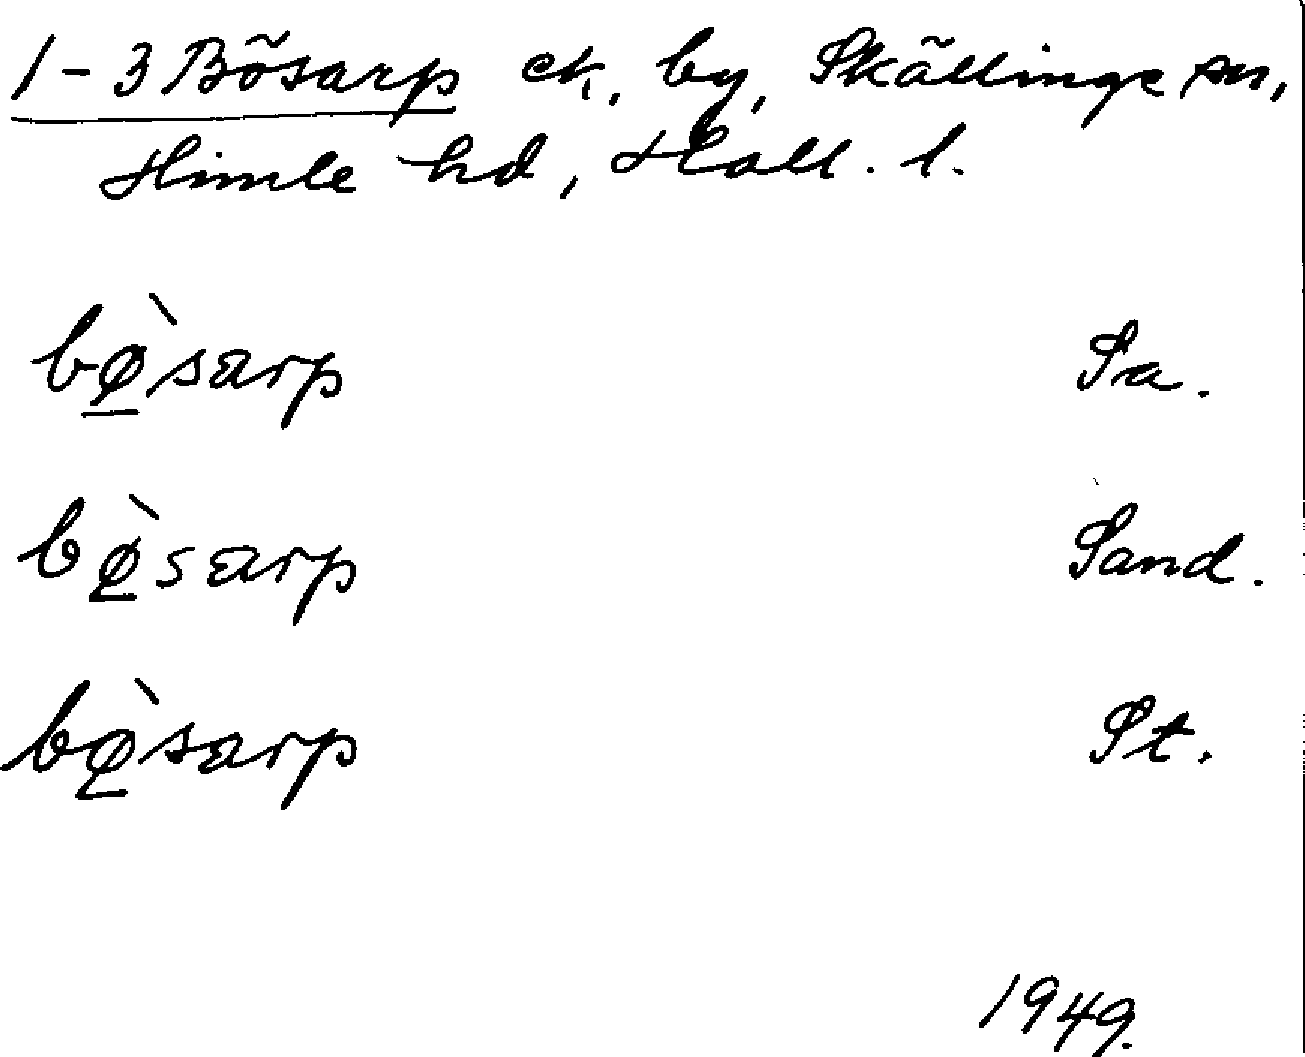 1-3 Bösarp ek, by, Skällinge sn,
Himle hd, Hall. l.
bø̱̀sarp Sa.
bø̱̀sarp Sand.
bø̱̀sarp St.
1949.